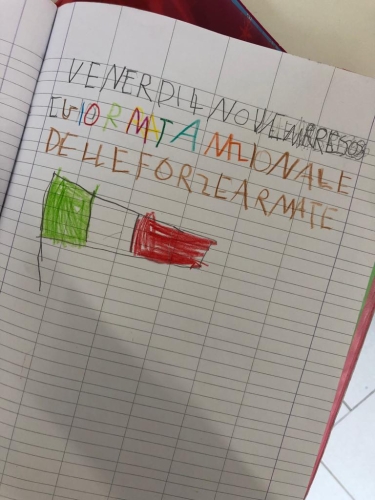 VENERDI 4 NOVEMBRE
GIORMATA NAZIONALE
DELLE FORZE ARMATE